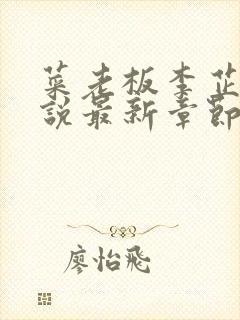 菜老板李芷
說最新章節
廖怡飛